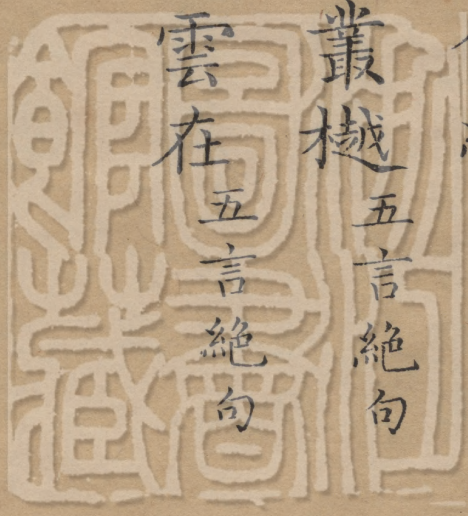 叢樾五言絶句
雲在五言絶句